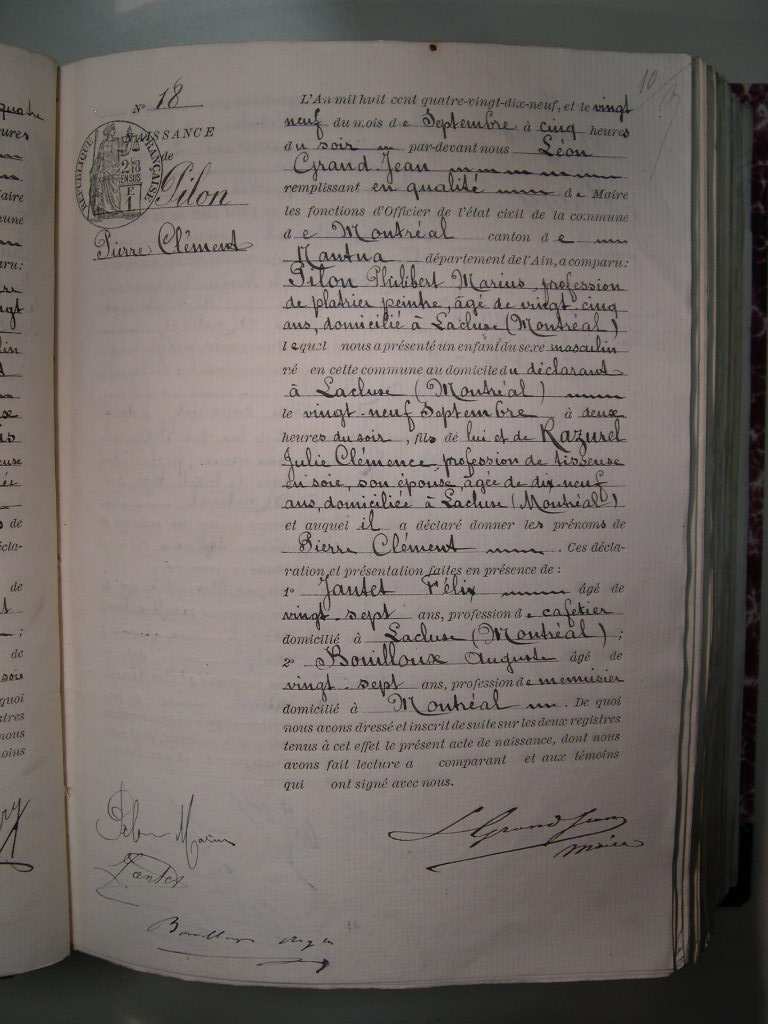 10
N° 18
NAISSANCE
de
Pilon
Pierre Clément
RÉPUBLIQUE FRANÇAISE
L'An mil huit cent quatre-vingt-dix-neuf, et le vingt
neuf du mois de Septembre à cinq heures
du soir par-devant nous Léon
Grand-Jean
remplissant en qualité de Maire
les fonctions d'Officier de l'état civil de la commune
de Montréal canton de
Nantua département de l'Ain, a comparu:
Pilon Philibert Marius, profession
de platrier peintre, âgé de vingt-cinq
ans, domicilié à Lacluse (Montréal)
lequel nous a présenté un enfant du sexe masculin
né en cette commune au domicile du déclarant
à Lacluse (Montréal)
le vingt-neuf Septembre à deux
heures du soir, fils de lui et de Razurel
Julie Clémence, profession de tisseuse
en soie, son épouse, âgée de dix-neuf
ans, domiciliée à Lacluse (Montréal)
et auquel il a déclaré donner les prénoms de
Pierre Clément . Ces décla-
ration et présentation faites en présence de :
1° Jantet Félix âgé de
vingt-sept ans, profession de cafetier
domicilié à Lacluse (Montréal) ;
2° Bouilloux Auguste âgé de
vingt-sept ans, profession de menuisier
domicilié à Montréal . De quoi
nous avons dressé et inscrit de suite sur les deux registres
tenus à cet effet le présent acte de naissance, dont nous
avons fait lecture a comparant et aux témoins
qui ont signé avec nous.
Pilon Marius
L Grand-Jean
Maire
Jantet
Bouilloux